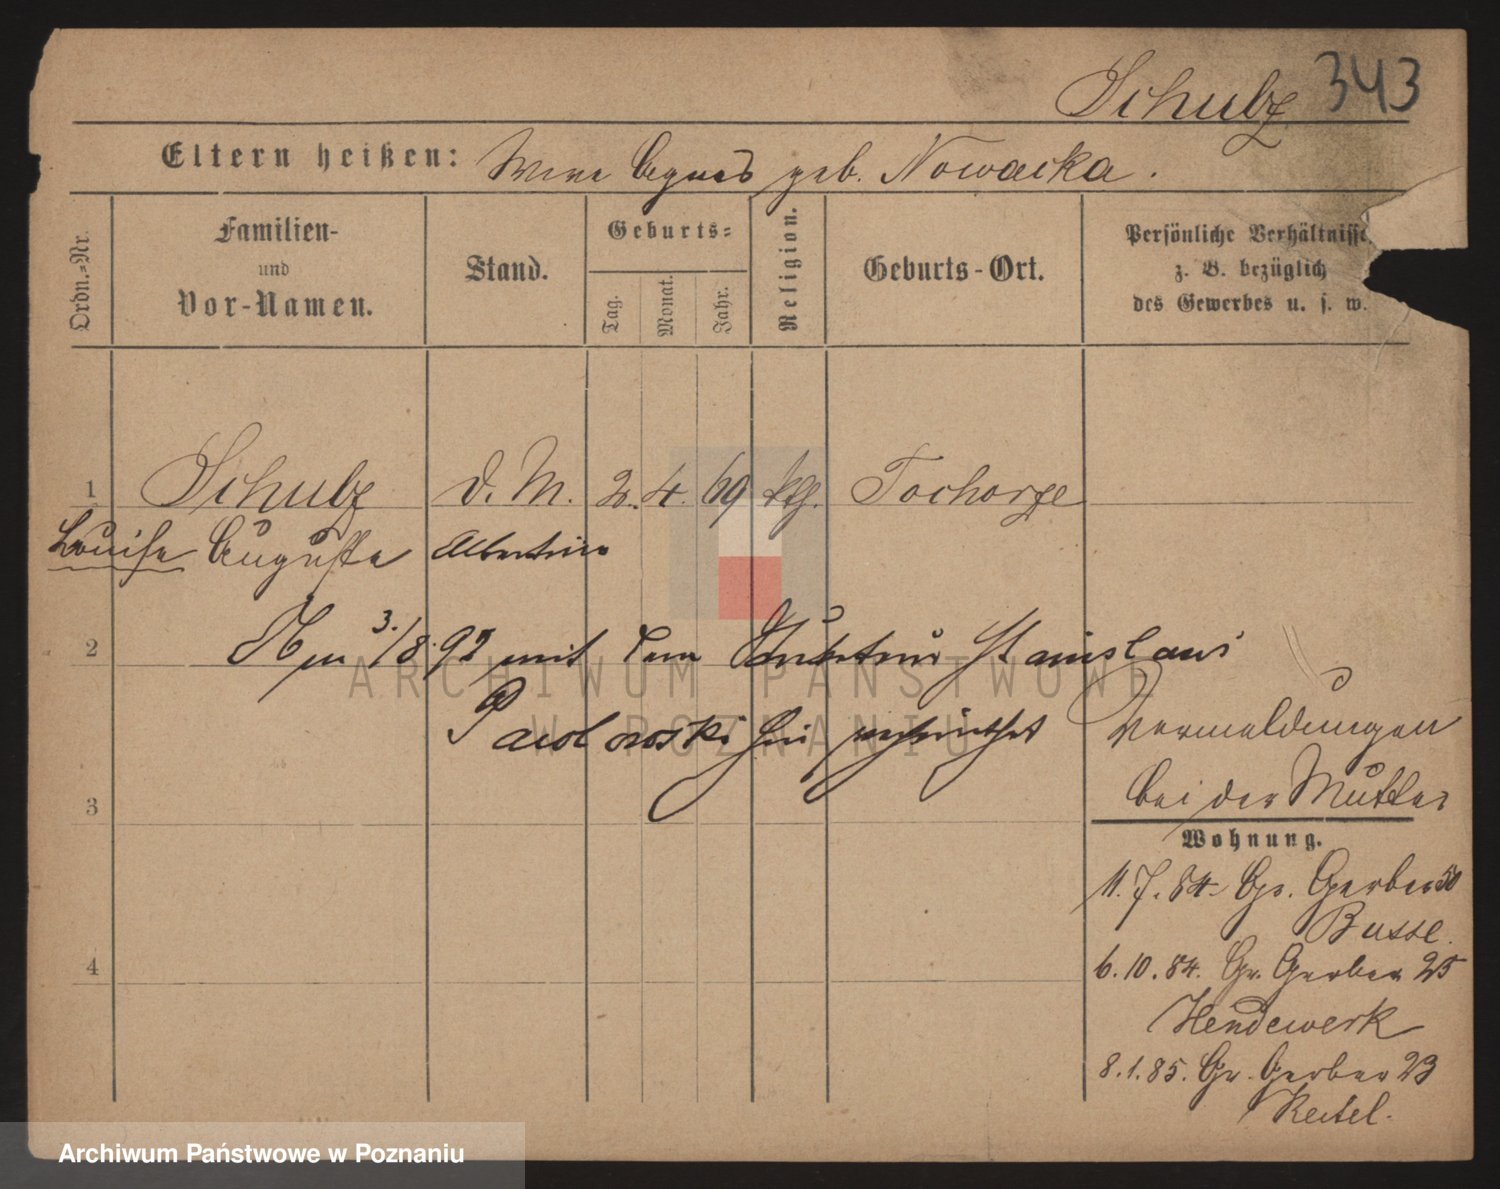 343
Schulz
Eltern heißen: Wwe Agnes geb. Nowacka.
Ordn.=Nr.
Familien-
und
Vor-Namen.
Stand.
Geburts=
Tag.
Monat.
Jahr.
Religion.
Geburts-Ort.
Persönliche Verhältnisse
z. B. bezüglich
des Gewerbes u. s. w.
1 Schulz d. M. 2. 4. 69 ktg.
Louise Auguste Albertine
2 3./8. 92 mit dem Stanislaus
hier
Vermeldungen
bei der Mutter
3
Wohnung.
11. 7. 84. Gr. Gerber 50
Busse.
4
6. 10. 84. Gr. Gerber 25
Hendewerk
8. 1. 85. Gr. Gerber 23
Keitel.
ARCHIWUM PAŃSTWOWE
W POZNANIU
Archiwum Państwowe w Poznaniu